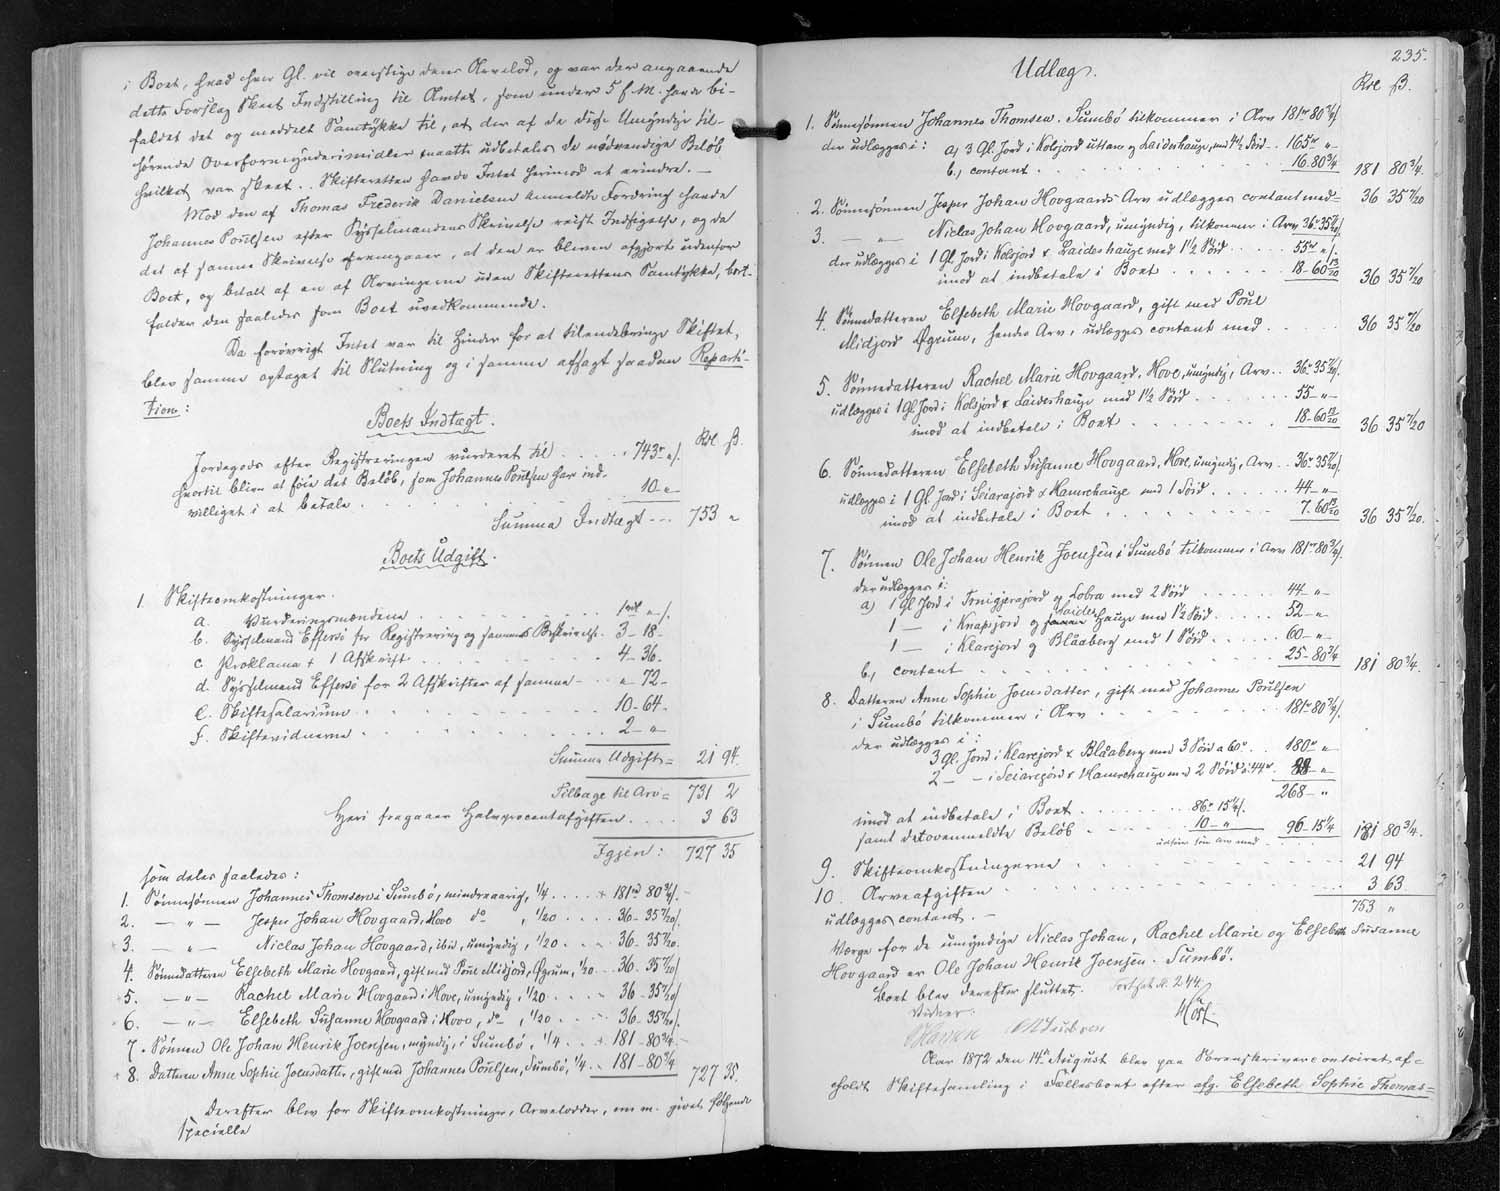 i Boet, hvad hver Gl. vil overstige dens Arvelod, og var der angaaende
dette Forslag skeet Indstilling til Amtet, som under 5 f. M. havde bi-
faldet det og meddelt Samtykke til, at der af de disse Umyndige til-
hørende Overformynderimidler maatte udbetales de nødvendige Beløb
hvilket var skeet. Skifteretten havde Intet herimod at erindre. —
Mod den af Thomas Frederik Danielsen anmeldte Fordring havde
Johannes Poulsen efter Sysselmandens Skrivelse reist Indsigelse, og da
det af samme Skrivelse fremgaaer, at den er bleven afgjort udenfor
Boet, og betalt af en af Arvingerne uden Skifterettens Samtykke, bort-
falder den saaledes som Boet uvedkommende.
Da forøvrigt Intet var til Hinder for at tilendebringe Skiftet,
blev samme optaget til Slutning og i samme afsagt saadan Reparti-
tion:
Boets Indtægt.
Rdl. ß.
Jordegods efter Registreringen vurderet til . . . . 743 " /.
hvortil bliver at føie det Beløb, som Johannes Poulsen har ind-
villiget i at betale . . . 10 - "
Summa Indtægt -- 753 "
Boets Udgift.
1. Skifteomkostninger.
a. Vurderingsmændene . . . 1 rdl " /.
b. Sysselmand Effersø for Registrering og sammes Beskrivelse . 3 - 18 -
c. Proklama + 1 Afskrift . . . 4 - 36 -
d. Sysselmand Effersø for 2 Afskrifter af samme - " - 72 -
e. Skiftesalarium . . . 10 - 64 -
f. Skiftevidnerne . . . 2 - "
Summa Udgift = 21 94.
Tilbage til Arv = 731 2
Heri fragaaer Halvprocentafgiften . . . . 3 63
Igjen: 727 35
som deles saaledes:
1. Sønnesønnen Johannes Thomsen i Sumbø, mindreaarig, 1/4 . . . . 181 rd 80 3/4 /.
2. — " — Jesper Johan Hovgaard, Hove do , 1/20 . . . 36 - 35 7/20 /.
3. — " — Niclas Johan Hovgaard, ibid, umyndig, 1/20 . . . 36 - 35 7/20.
4. Sønnedatteren Elsebeth Marie Hovgaard, gift med Poul Midjord, Øgrum, 1/20 . . 36 - 35 7/20 /.
5. — " — Rachel Marie Hovgaard i Hove, umyndig, 1/20 . . . . 36 - 35 7/20 /.
6. — " — Elsebeth Susanne Hovgaard i Hove, do , 1/20 . . . 36 - 35 7/20 /.
7. Sønnen Ole Johan Henrik Joensen, myndig, i Sumbø, 1/4 . . . 181 - 80 3/4 -
8. Datteren Anne Sophie Joensdatter, gift med Johannes Poulsen, Sumbø, 1/4 . . 181 - 80 3/4 727 35.
Derefter blev for Skifteomkostninger, Arvelodder, m. m. givet følgende
specielle
235.
Udlæg.
Rdl ß.
1. Sønnesønnen Johannes Thomsen, Sumbø tilkommer i Arv 181 rd 80 3/4 /.
der udlægges i: a) 3 Gl. Jord i Kolsjord uttan og Laidishauge, med 4 1/2 Søid . . 165 rd "
b., contant . . . 16. 80 3/4. 181 80 3/4.
2. Sønnesønnen Jesper Johan Hovgaards Arv udlægges contant med - 36 35 7/20
3. — " — Niclas Johan Hovgaard, umyndig, tilkommer i Arv 36 rd 35 7/20 /.
der udlægges i 1 Gl. Jord i Kolsjord & Laidishauge med 1 1/2 Søid . . . 55 rd " /.
imod at indbetale i Boet . . . 18 - 60 13/20 36 35 7/20
4. Sønnedatteren Elsebeth Marie Hovgaard, gift med Poul
Midjord Øgrum, hendes Arv, udlægges contant med . . . . 36 35 7/20
5. Sønnedatteren Rachel Marie Hovgaard, Hove, umyndig, Arv . . 36 rd 35 7/20 /.
udlægges i 1 Gl. Jord i Kolsjord & Laidishauge med 1 1/2 Søid . . . . 55 - " -
imod at indbetale i Boet . . . 18 - 60 13/20 36 35 7/20
6. Sønnedatteren Elsebeth Susanne Hovgaard, Hove, umyndig, Arv . . 36 rd 35 7/20 /.
udlægges i 1 Gl. Jord i Seiarajord & Hamrehauge med 1 Søid . . . . 44 - " -
imod at indbetale i Boet . . . 7. 60 13/20 36 35 7/20.
7. Sønnen Ole Johan Henrik Joensen i Sumbø tilkommer i Arv 181 rd 80 3/4 /.
der udlægges i:
a) 1 Gl. Jord i og Lobra med 2 Søid . . . 44 - "
1 — i Knapsjord og Laidishauge med 1 1/2 Søid . . . . 52 - "
1 — i Klarejord og Blåaberg med 1 Søid . . . 60 - "
b, contant . . . 25 - 80 3/4 181 80 3/4.
8. Datteren Anne Sophie Joensdatter, gift med Johannes Poulsen
i Sumbø tilkommer i Arv . . . 181 rd 80 3/4 /.
der udlægges i:
3 Gl. Jord i Klarejord & Blåaberg med 3 Søid a 60 rd . . 180 rd "
2 — — i Seiarajord & Hamrehauge med 2 Søid á 44 rd . 88 - "
268 - "
imod at indbetale i Boet . . . 86 rd 15 1/4 /.
samt det ovenmeldte Beløb . . . 10 - " 96 - 15 1/4 181 80 3/4.
9. Skifteomkostningerne . . . 21 94
10. Arveafgiften . . . 3 63.
udlægges contant. — 753 "
Værge for de umyndige Niclas Johan, Rachel Marie og Elsebeth Susanne
Hovgaard er Ole Johan Henrik Joensen. Sumbø.
Boet blev derefter sluttet. Fortsat S. 244.
Vidner: Høst.
Hansen
Aar 1872 den 14de August blev paa Sorenskrivercontoiret af-
holdt Skiftesamling i Fællesboet efter afg. Elsebeth Sophie Thomas=